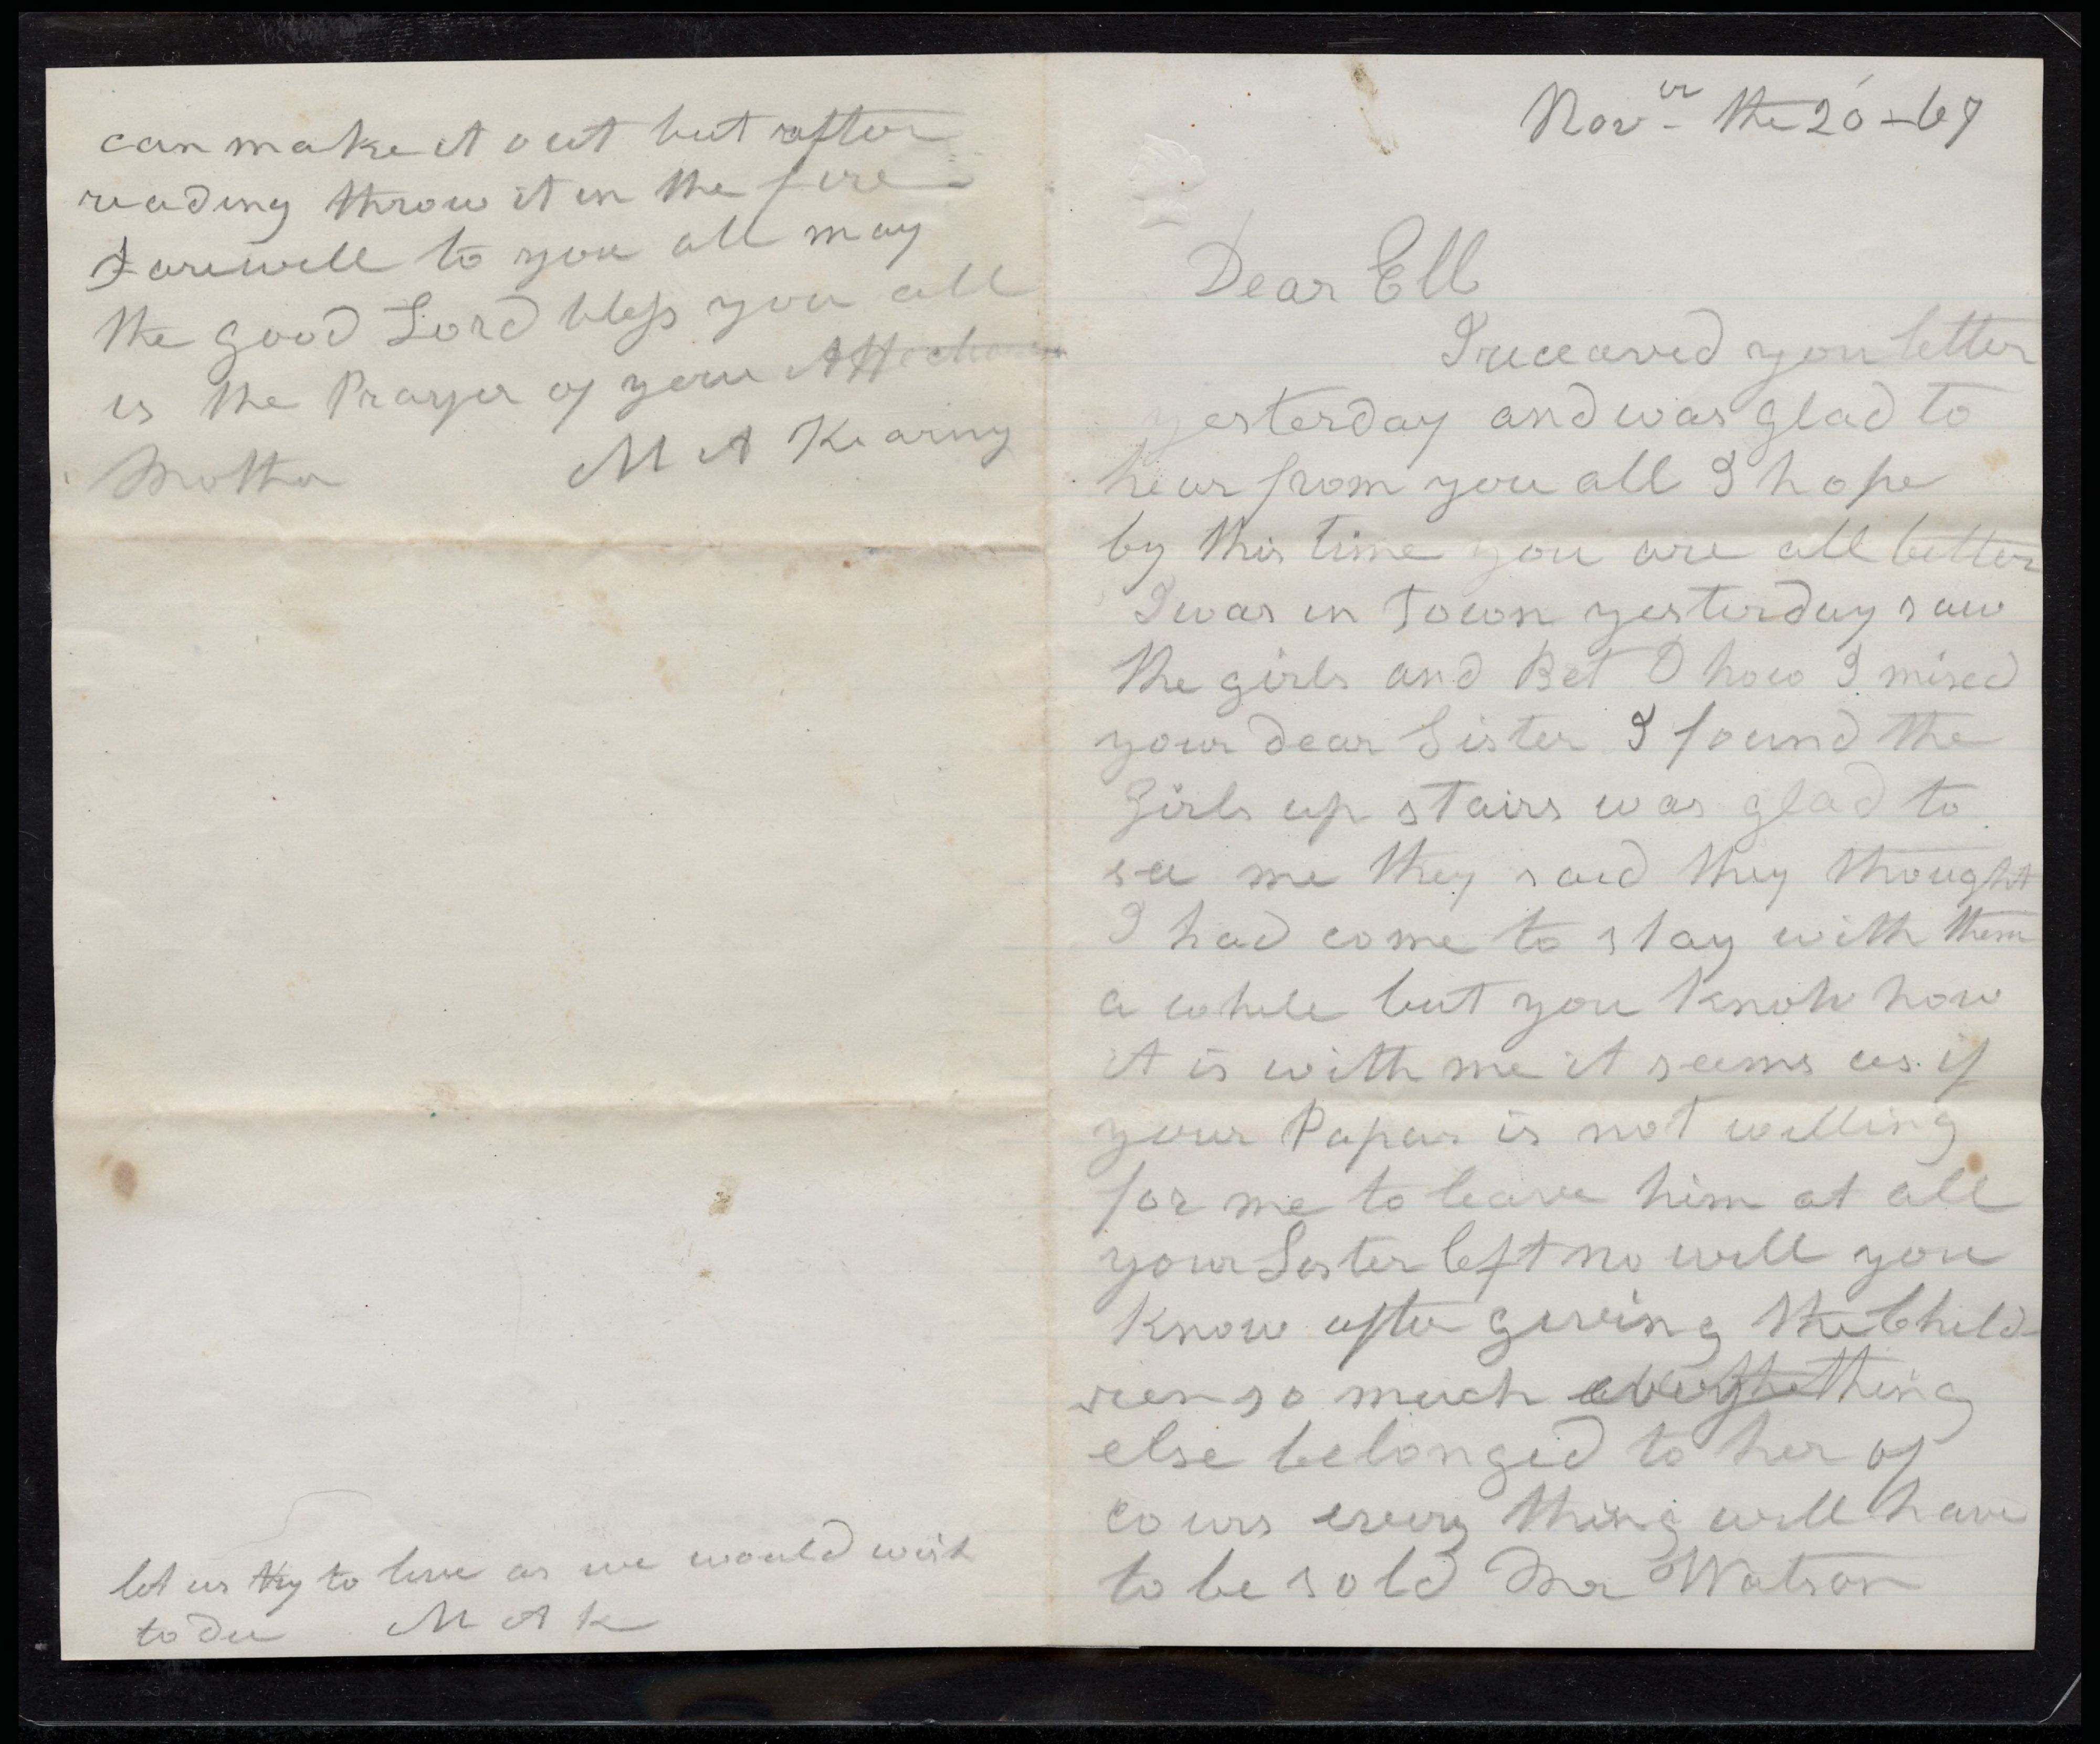 Nov^er the 20 - 67
Dear Ell
I receaved you letter
yesterday and was glad to
hear from you all I hope
by this time you are all better
I was in Town yesterday saw
the girls and Bet O how I mised
your dear Sister I found the
Girls up stairs was glad to
see me they said they thought
I had come to stay with them
a while but you know how
it is with me it seems as if
your Papar is not willing
for me to leave him at all
your Sister left no will you
know after giveing the Child-
ren so much thing
else belonged to her of
cours every thing will have
to be sold Mr Watson
can make it out but after
reading throw it in the fire
Farewell to you all may
the good Lord bless you all
is the Prayer of your
Mother M A Kearny
let us try to live as we would wish
to die M A K